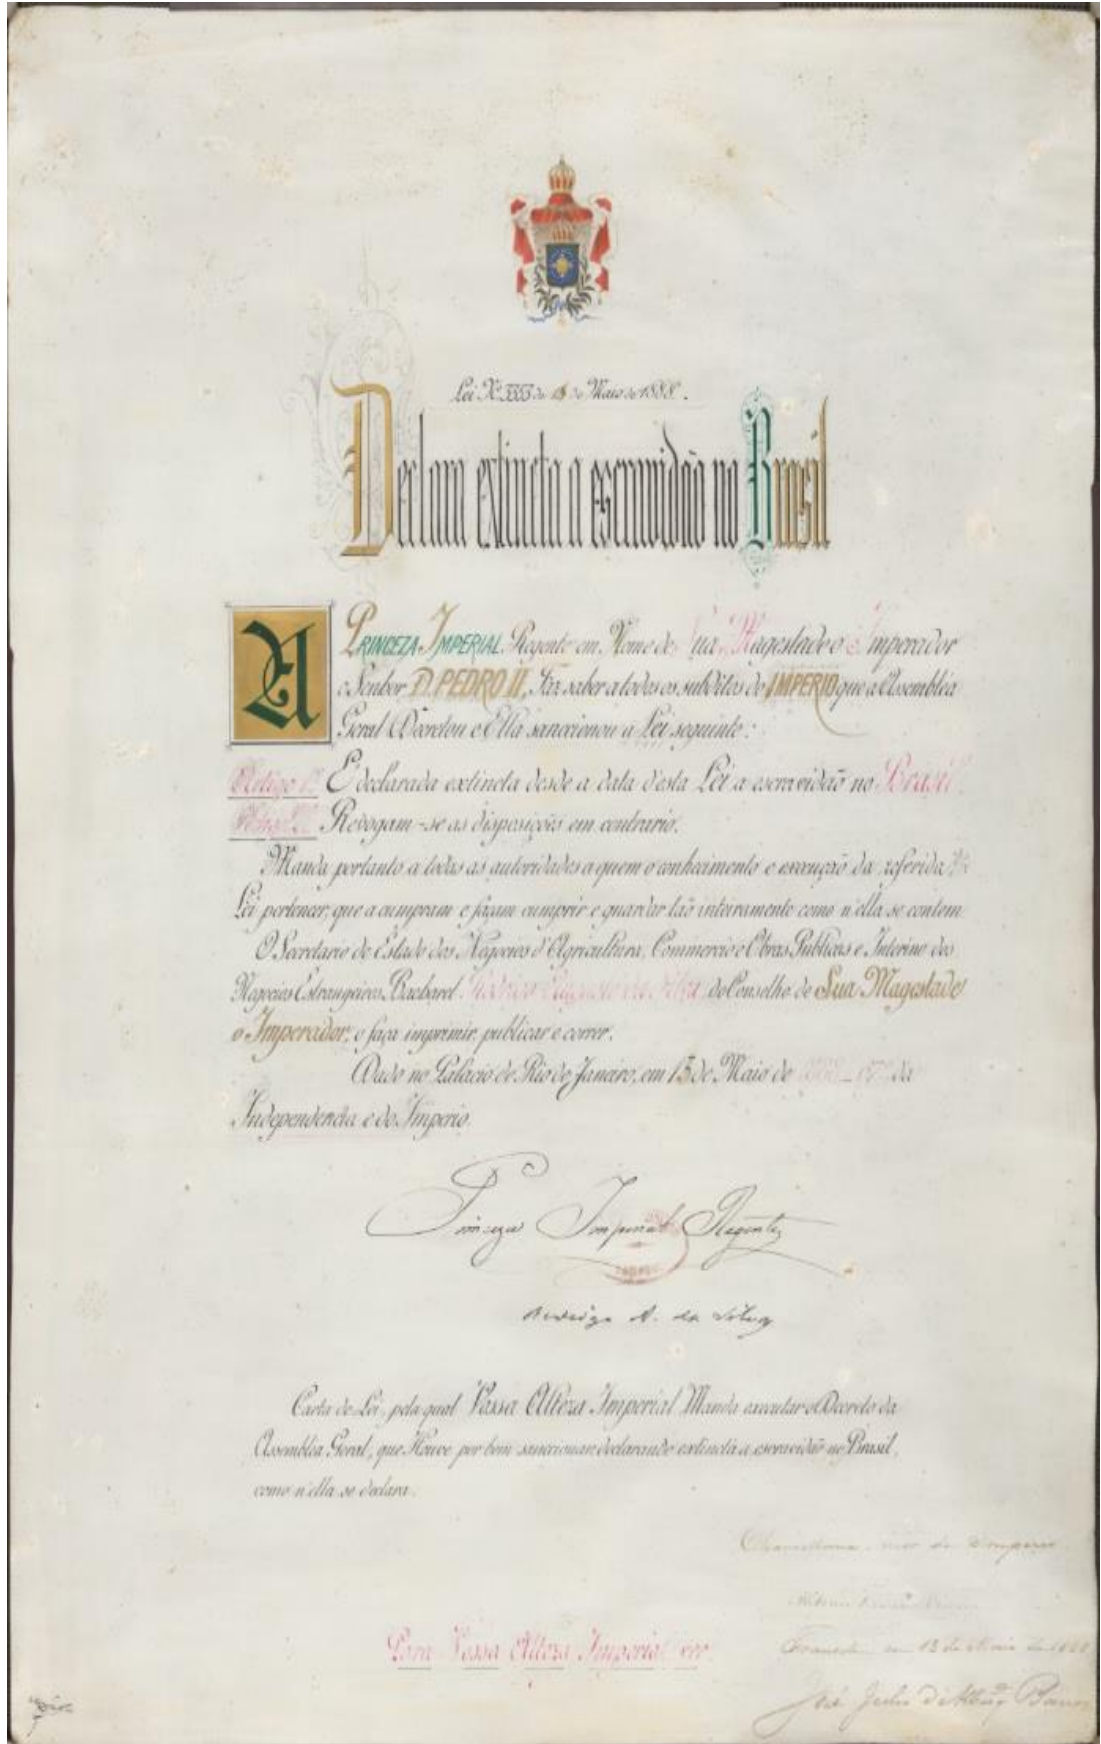 Lei N. 3353 de 13 de Maio de 1888.
Declara extincta a escravidão no Brasil
A PRINCEZA IMPERIAL Regente em Nome de Sua Magestade o Imperador
o Senhor D. PEDRO II, Faz saber a todos os subditos do IMPERIO que a Assemblea
Geral Decretou e Ella sanccionou a Lei seguinte:
Artigo 1º É declarada extincta desde a data d'esta Lei a escravidão no Brasil.
Artigo 2º Revogam-se as disposições em contrario.
Manda portanto a todas as autoridades a quem o conhecimento e execução da referida
Lei pertencer, que a cumpram e façam cumprir e guardar tão inteiramente como n'ella se contem.
O Secretario de Estado dos Negocios d'Agricultura, Commercio e Obras Publicas e Interino dos
Negocios Estrangeiros Bacharel Rodrigo Augusto da Silva do Conselho de Sua Magestade
o Imperador, o faça imprimir, publicar e correr.
Dado no Palacio do Rio de Janeiro, em 13 de Maio de 1888 - 67º da
Independencia e do Imperio.
Princeza Imperial Regente
Rodrigo A. da Silva
Carta de Lei, pela qual Vossa Alteza Imperial Manda executar o Decreto da
Assemblea Geral, que Houve por bem sanccionar declarando extincta a escravidão no Brasil,
como n'ella se declara.
Chancellaria-mór do Imperio
Para Vossa Alteza Imperial ver
em 13 de Maio de 1888
José Julio d'Albuqº Barros